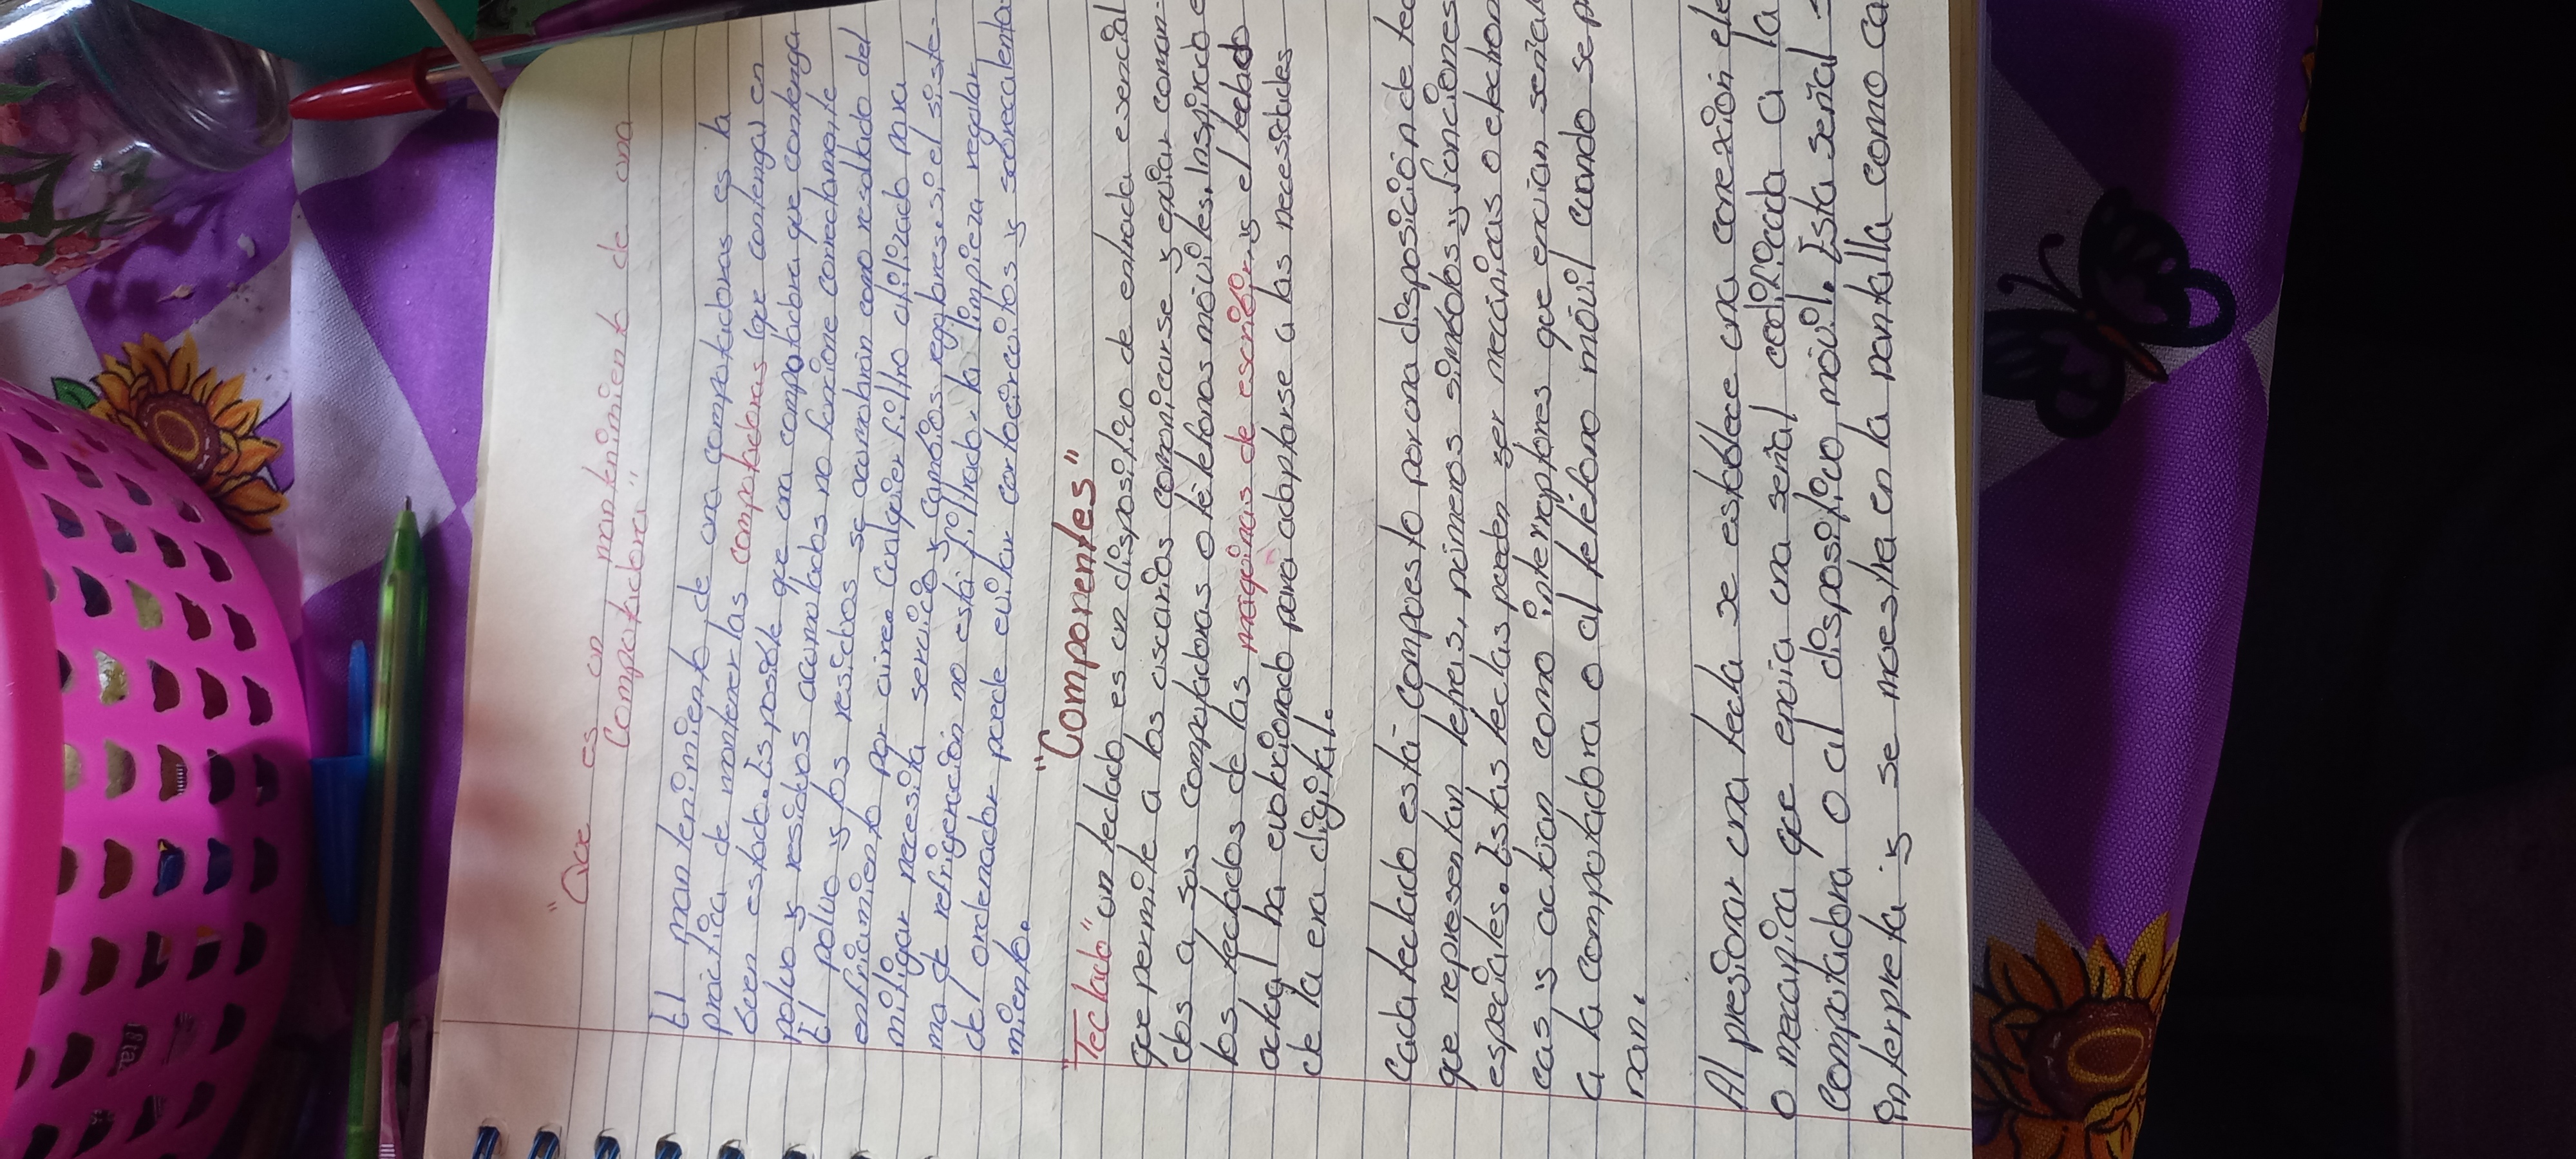 "Que es un mantenimiento de una
Computadora"
El mantenimiento de una computadoras es la
práctica de mantener las computadoras que contengas en
buen estado. Es posible que una computadora que contenga
polvo y residuos acumulados no funcione correctamente
El polvo y los residuos se acumularán como resultado del
enfriamiento por aire. Cualquier filtro utilizado para
mitigar necesita servicio y cambios regulares, si el siste-
ma de refrigeración no está filtrado. la limpieza regular
del ordenador puede evitar cortocircuitos y sobrecalenta-
miento.
"Componentes"
"Teclado" un teclado es un dispositivo de entrada esencial
que permite a los usuarios comunicarse y enviar coman-
dos a sus computadoras o teléfonos móviles. Inspirado e
los teclados de las maquinas de escribir, y el teclado
actual ha evolucionado para adaptarse a las necesidades
de la era digital.
Cada teclado está compuesto por una disposición de tec
que representan letras, números símbolos y funciones
especiales. Estas teclas pueden ser mecánicas o electron
cas y actúan como interruptores que envían señal
a la computadora o al teléfono móvil cuando se p
nan.
Al presionar una tecla se establece una conexión ele
o mecánica que envía una señal codificada a la
computadora o al dispositivo móvil. Esta señal -
interpreta y se muestra en la pantalla como ca